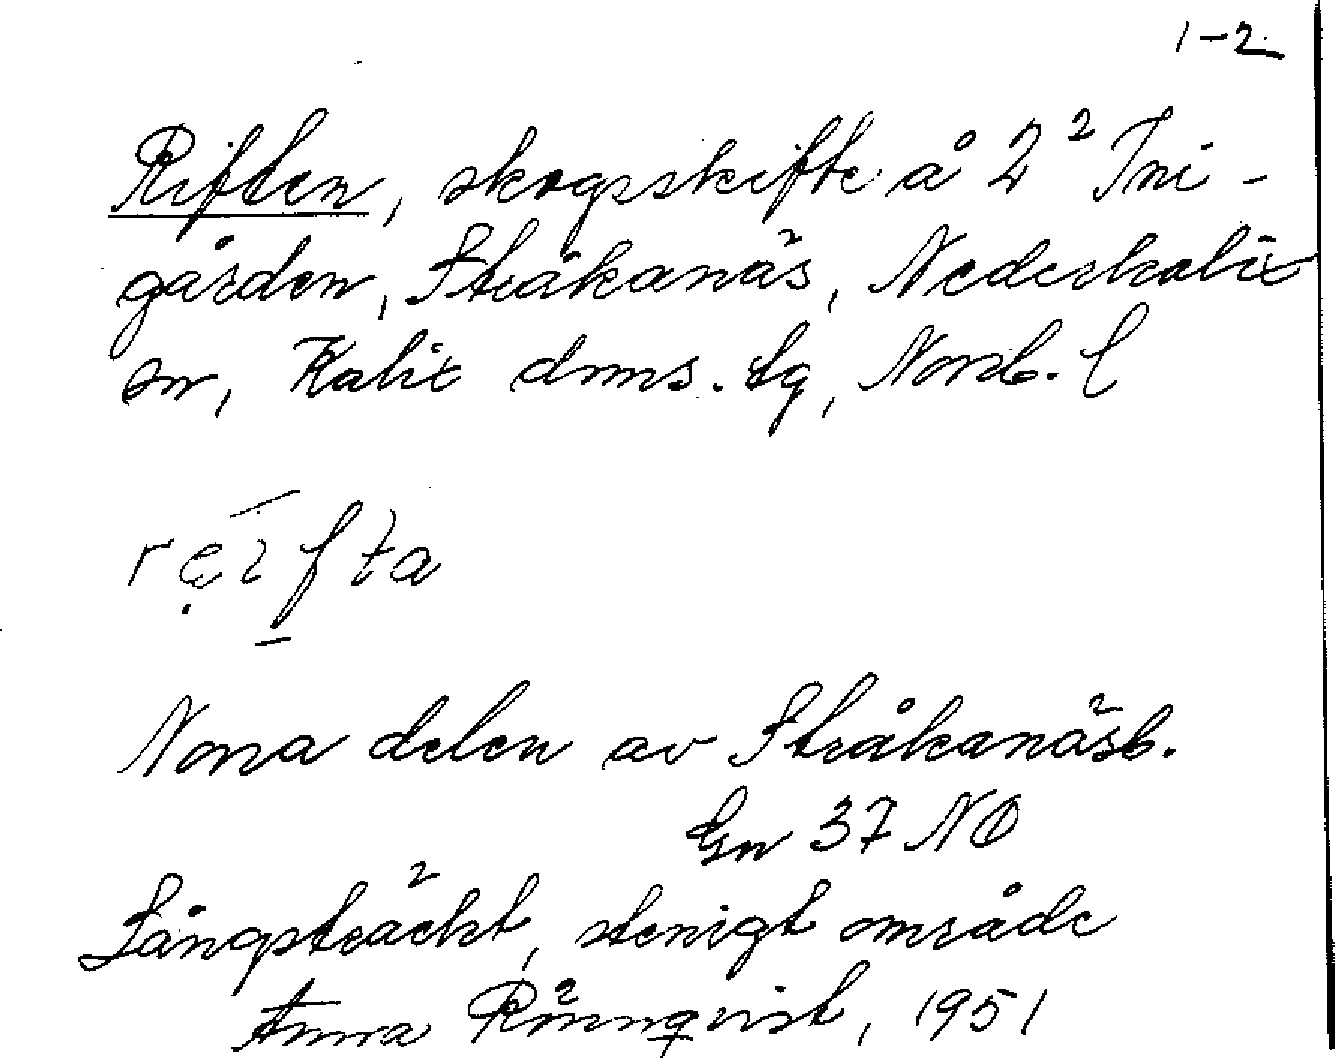 1-2
Riften, skogsskifte å 2² Tni-
gården, Stråkanäs, Nederkalix
sn, Kalix dms. tg, Norrb. l
reifta
Norra delen av Stråkanäsb.
Gn 37 NO
Långsträckt, stenigt område
Anna Rönnqvist, 1951